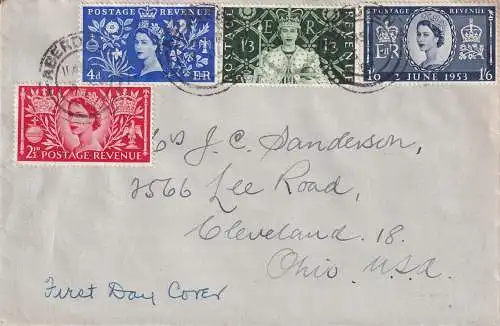 POSTAGE REVENUE
4d E II R
POSTAGE E R REVENUE
1/3 1/3
POSTAGE REVENUE
E II R
1/6 2 JUNE 1953 1/6
ABERD
2½D POSTAGE REVENUE
J. C. Sanderson,
2566 Lee Road,
Cleveland. 18.
Ohio. U.S.A.
First Day Cover